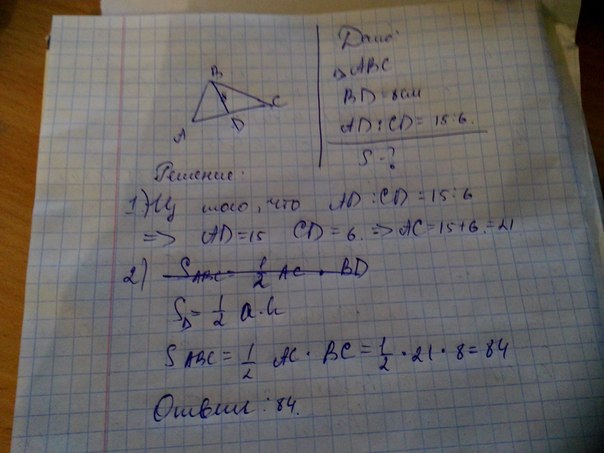 B
8
C
A
D
Дано:
△ABC
BD = 8см
AD : CD = 15 : 6.
S - ?
Решение:
1) Из того, что AD : CD = 15 : 6
=> AD = 15 CD = 6. => AC = 15 + 6 = 21
2) S ABC = 1/2 AC · BD
S△ = 1/2 a · h
S ABC = 1/2 AC · BC = 1/2 · 21 · 8 = 84
Ответ : 84.